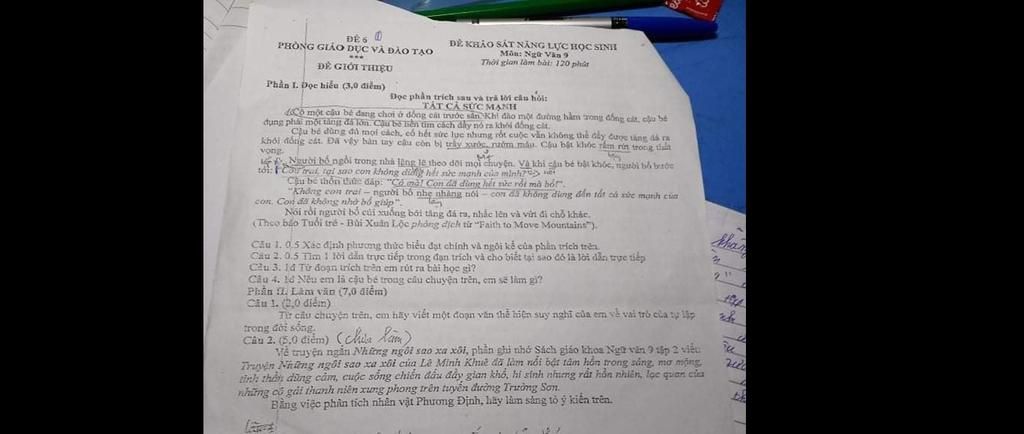 ĐỀ 6
PHÒNG GIÁO DỤC VÀ ĐÀO TẠO
***
ĐỀ GIỚI THIỆU
ĐỀ KHẢO SÁT NĂNG LỰC HỌC SINH
Môn: Ngữ Văn 9
Thời gian làm bài: 120 phút
Phần I. Đọc hiểu (3,0 điểm)
Đọc phần trích sau và trả lời câu hỏi:
TẤT CẢ SỨC MẠNH
Có một cậu bé đang chơi ở đống cát trước sân. Khi đào một đường hầm trong đống cát, cậu bé
đụng phải một tảng đá lớn. Cậu bé liền tìm cách đẩy nó ra khỏi đống cát.
Cậu bé dùng đủ mọi cách, cố hết sức lực nhưng rốt cuộc vẫn không thể đẩy được tảng đá ra
khỏi đống cát. Đã vậy bàn tay cậu còn bị trầy xước, rướm máu. Cậu bật khóc rấm rứt trong thất
vọng.
Người bố ngồi trong nhà lặng lẽ theo dõi mọi chuyện. Và khi cậu bé bật khóc, người bố bước
tới: "Con trai, tại sao con không dùng hết sức mạnh của mình?"
Cậu bé thổn thức đáp: "Có mà! Con đã dùng hết sức rồi mà bố!".
"Không con trai – người bố nhẹ nhàng nói – con đã không dùng đến tất cả sức mạnh của
con. Con đã không nhờ bố giúp".
Nói rồi người bố cúi xuống bới tảng đá ra, nhấc lên và vứt đi chỗ khác.
(Theo báo Tuổi trẻ - Bùi Xuân Lộc phỏng dịch từ "Faith to Move Mountains").
Câu 1. 0.5 Xác định phương thức biểu đạt chính và ngôi kể của phần trích trên.
Câu 2. 0.5 Tìm 1 lời dẫn trực tiếp trong đạn trích và cho biết tại sao đó là lời dẫn trực tiếp
Câu 3. 1đ Từ đoạn trích trên em rút ra bài học gì?
Câu 4. 1đ Nếu em là cậu bé trong câu chuyện trên, em sẽ làm gì?
Phần II. Làm văn (7,0 điểm)
Câu 1. (2,0 điểm)
Từ câu chuyện trên, em hãy viết một đoạn văn thể hiện suy nghĩ của em về vai trò của tự lập
trong đời sống.
Câu 2. (5,0 điểm) (chưa làm)
Về truyện ngắn Những ngôi sao xa xôi, phần ghi nhớ Sách giáo khoa Ngữ văn 9 tập 2 viết:
Truyện Những ngôi sao xa xôi của Lê Minh Khuê đã làm nổi bật tâm hồn trong sáng, mơ mộng,
tinh thần dũng cảm, cuộc sống chiến đấu đầy gian khổ, hi sinh nhưng rất hồn nhiên, lạc quan của
những cô gái thanh niên xung phong trên tuyến đường Trường Sơn.
Bằng việc phân tích nhân vật Phương Định, hãy làm sáng tỏ ý kiến trên.